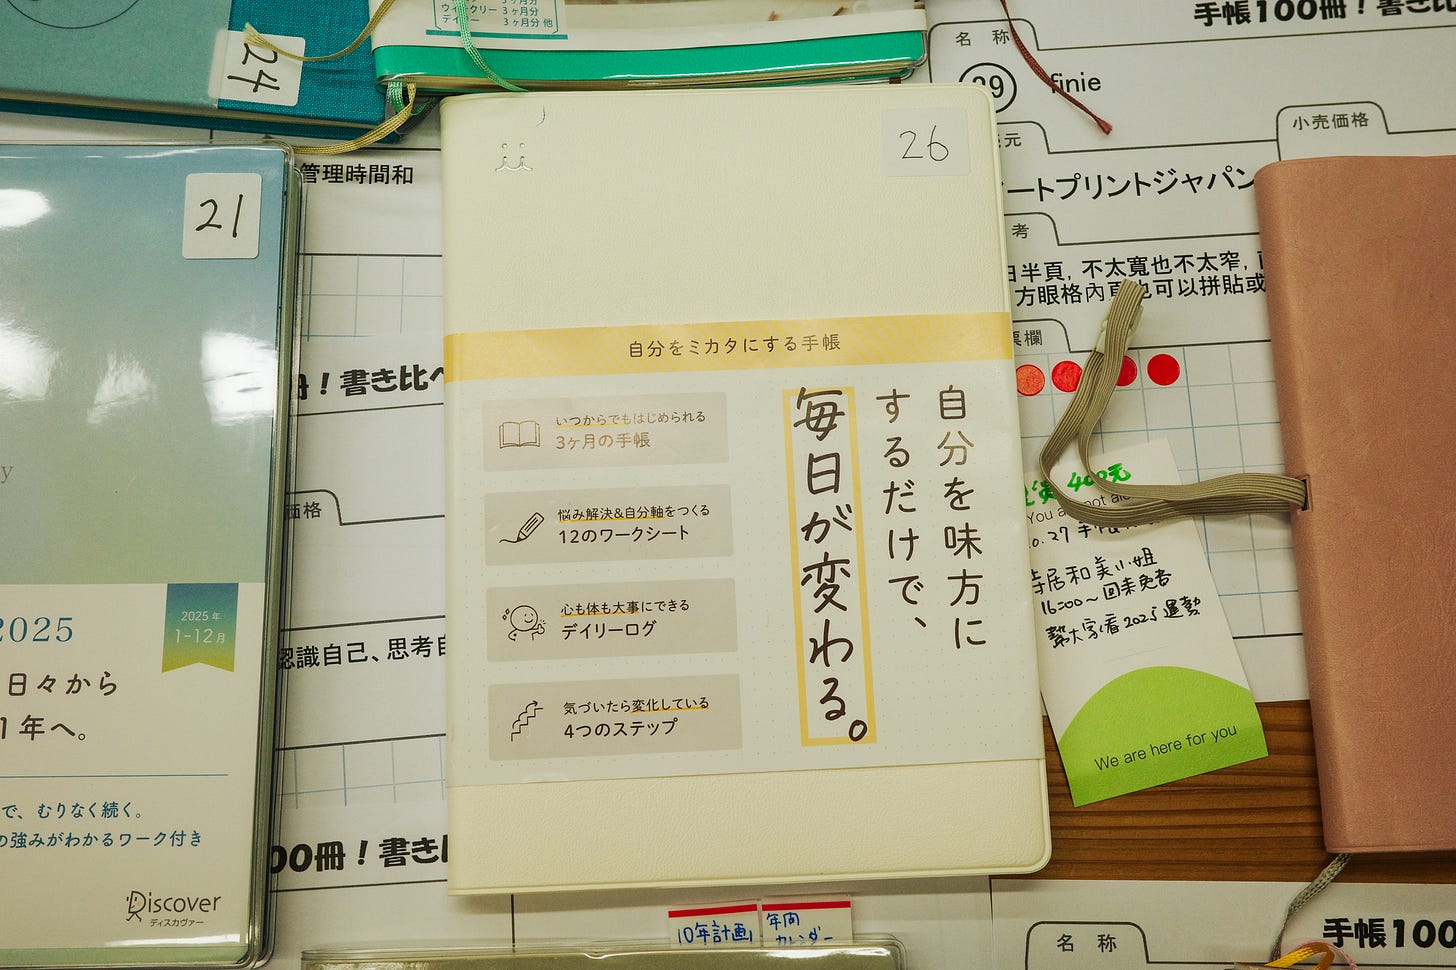 24
ウィークリー 3ヶ月分
デイリー 3ヶ月分 他
手帳100冊！書き比
名 称
29 finie
小売価格
元
ートプリントジャパン
考
日半頁, 不太寬也不太窄,
方眼格內頁也可以拼貼或
票欄
管理時間和
21
26
自分をミカタにする手帳
いつからでもはじめられる
3ヶ月の手帳
悩み解決&自分軸をつくる
12のワークシート
心も体も大事にできる
デイリーログ
気づいたら変化している
4つのステップ
自分を味方に
するだけで、
毎日が変わる。
冊！書き比べ
価格
認識自己、思考自
00冊！書き比
2025
2025年
1-12月
日々から
1年へ。
で、むりなく続く。
の強みがわかるワーク付き
Discover
ディスカヴァー
400元
You are not alo
.27 手帳
寺居和美小姐
16:00～回来免書
幫大家看2025運勢
We are here for you
10年計画
年間
カレンダー
名 称
手帳100